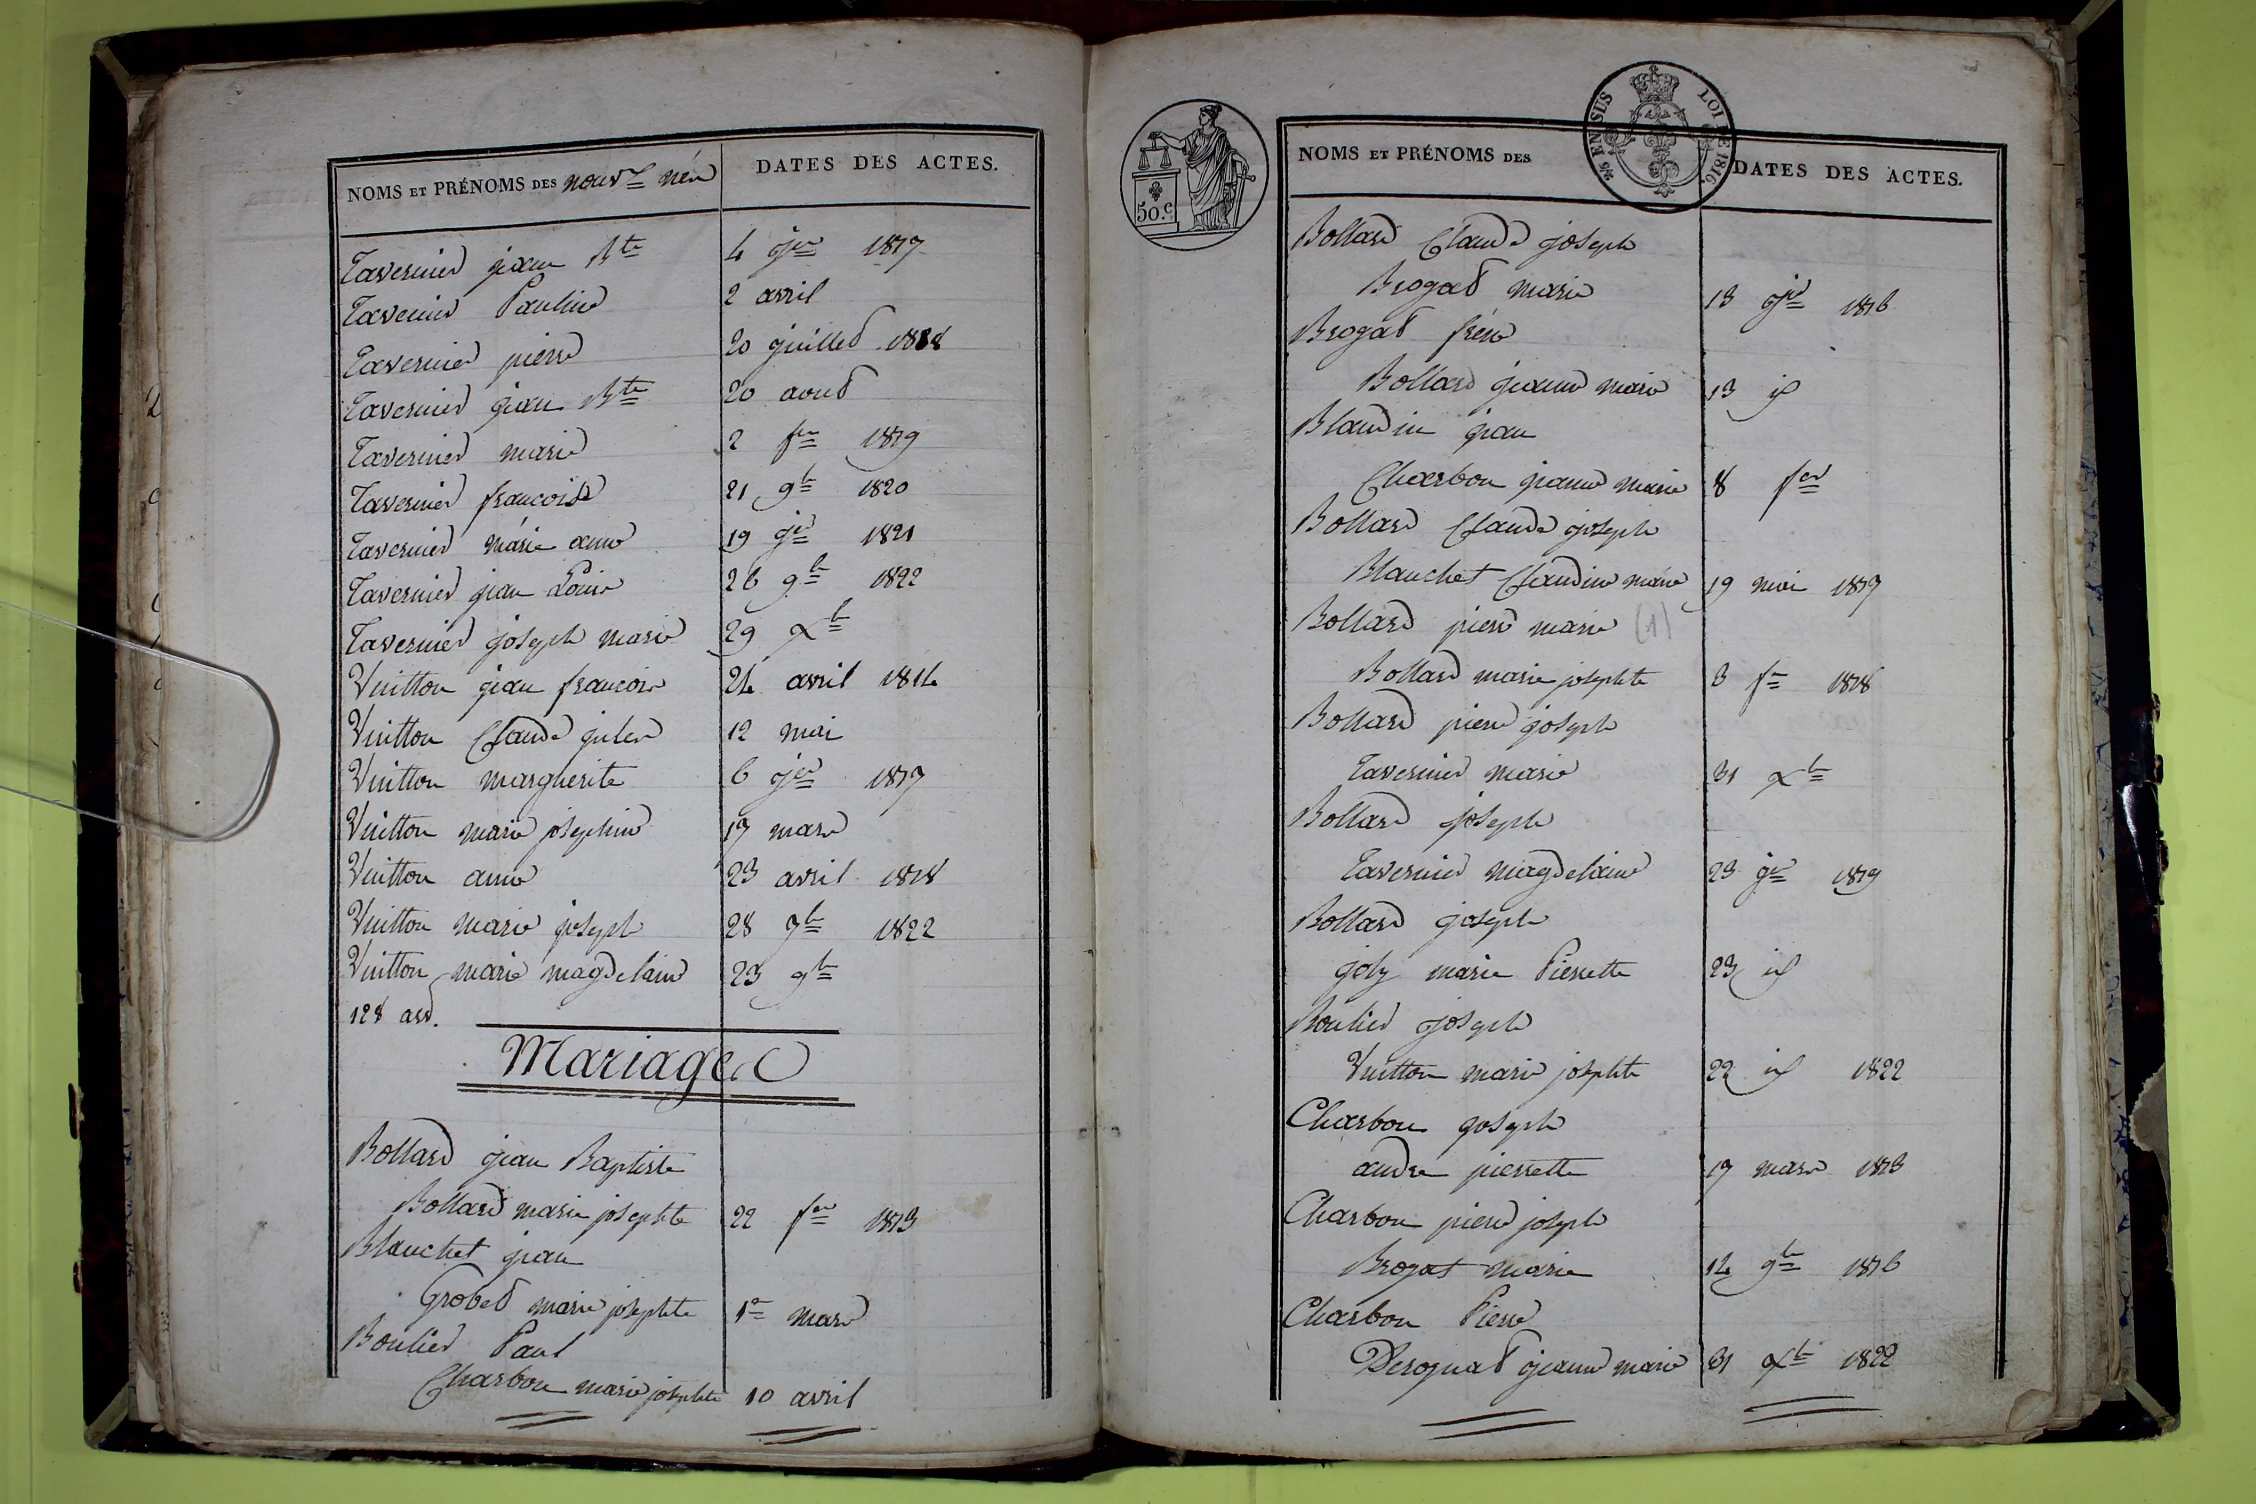 NOMS ET PRÉNOMS DES nouv.x nés
DATES DES ACTES.
Tavernier jean Bte 4 jer 1817
Tavernier Pauline 2 avril
Tavernier pierre 20 juillet 1818
Tavernier jean Bte 20 aout
Tavernier marie 2 fer 1819
Tavernier francoise 21 9b 1820
Tavernier marie anne 19 jer 1821
Tavernier jean Louis 26 9b 1822
Tavernier joseph marie 29 xb
Vuitton jean francois 24 avril 1814
Vuitton Claude jules 12 mai
Vuitton marguerite 6 jer 1817
Vuitton marie josephine 17 mars
Vuitton anne 23 avril 1818
Vuitton marie joseph 28 7b 1822
Vuitton marie magdelaine 23 9b
128 act.
Mariages
Bollard jean Baptiste
Bollard marie josephte 22 fer 1813
Blanchet jean
Grobet marie josephte 1er mars
Boulier Paul
Charbon marie josephte 10 avril
50.c
EN SUS LOI DE 1816.
NOMS ET PRÉNOMS DES
DATES DES ACTES.
Bollard Claude joseph
Brogat marie 13 jer 1816
Brogat frére
Bollard jeanne marie 13 id
Blandin jean
Charbon jeanne marie 8 fer
Bollard Claude joseph
Blanchet Claudine marie 19 mai 1817
Bollard pierre marie (1)
Bollard marie josephte 3 fer 1818
Bollard pierre joseph
Tavernier marie 31 xb
Bollard joseph
Tavernier magdelaine 23 jer 1819
Bollard joseph
joly marie Pierrette 23 id
Boulier joseph
Vuitton marie josephte 22 id 1822
Charbon joseph
andre pierrette 17 mars 1813
Charbon pierre joseph
Brogat marie 14 9b 1816
Charbon Pierre
Perognat jeanne marie 31 xb 1822